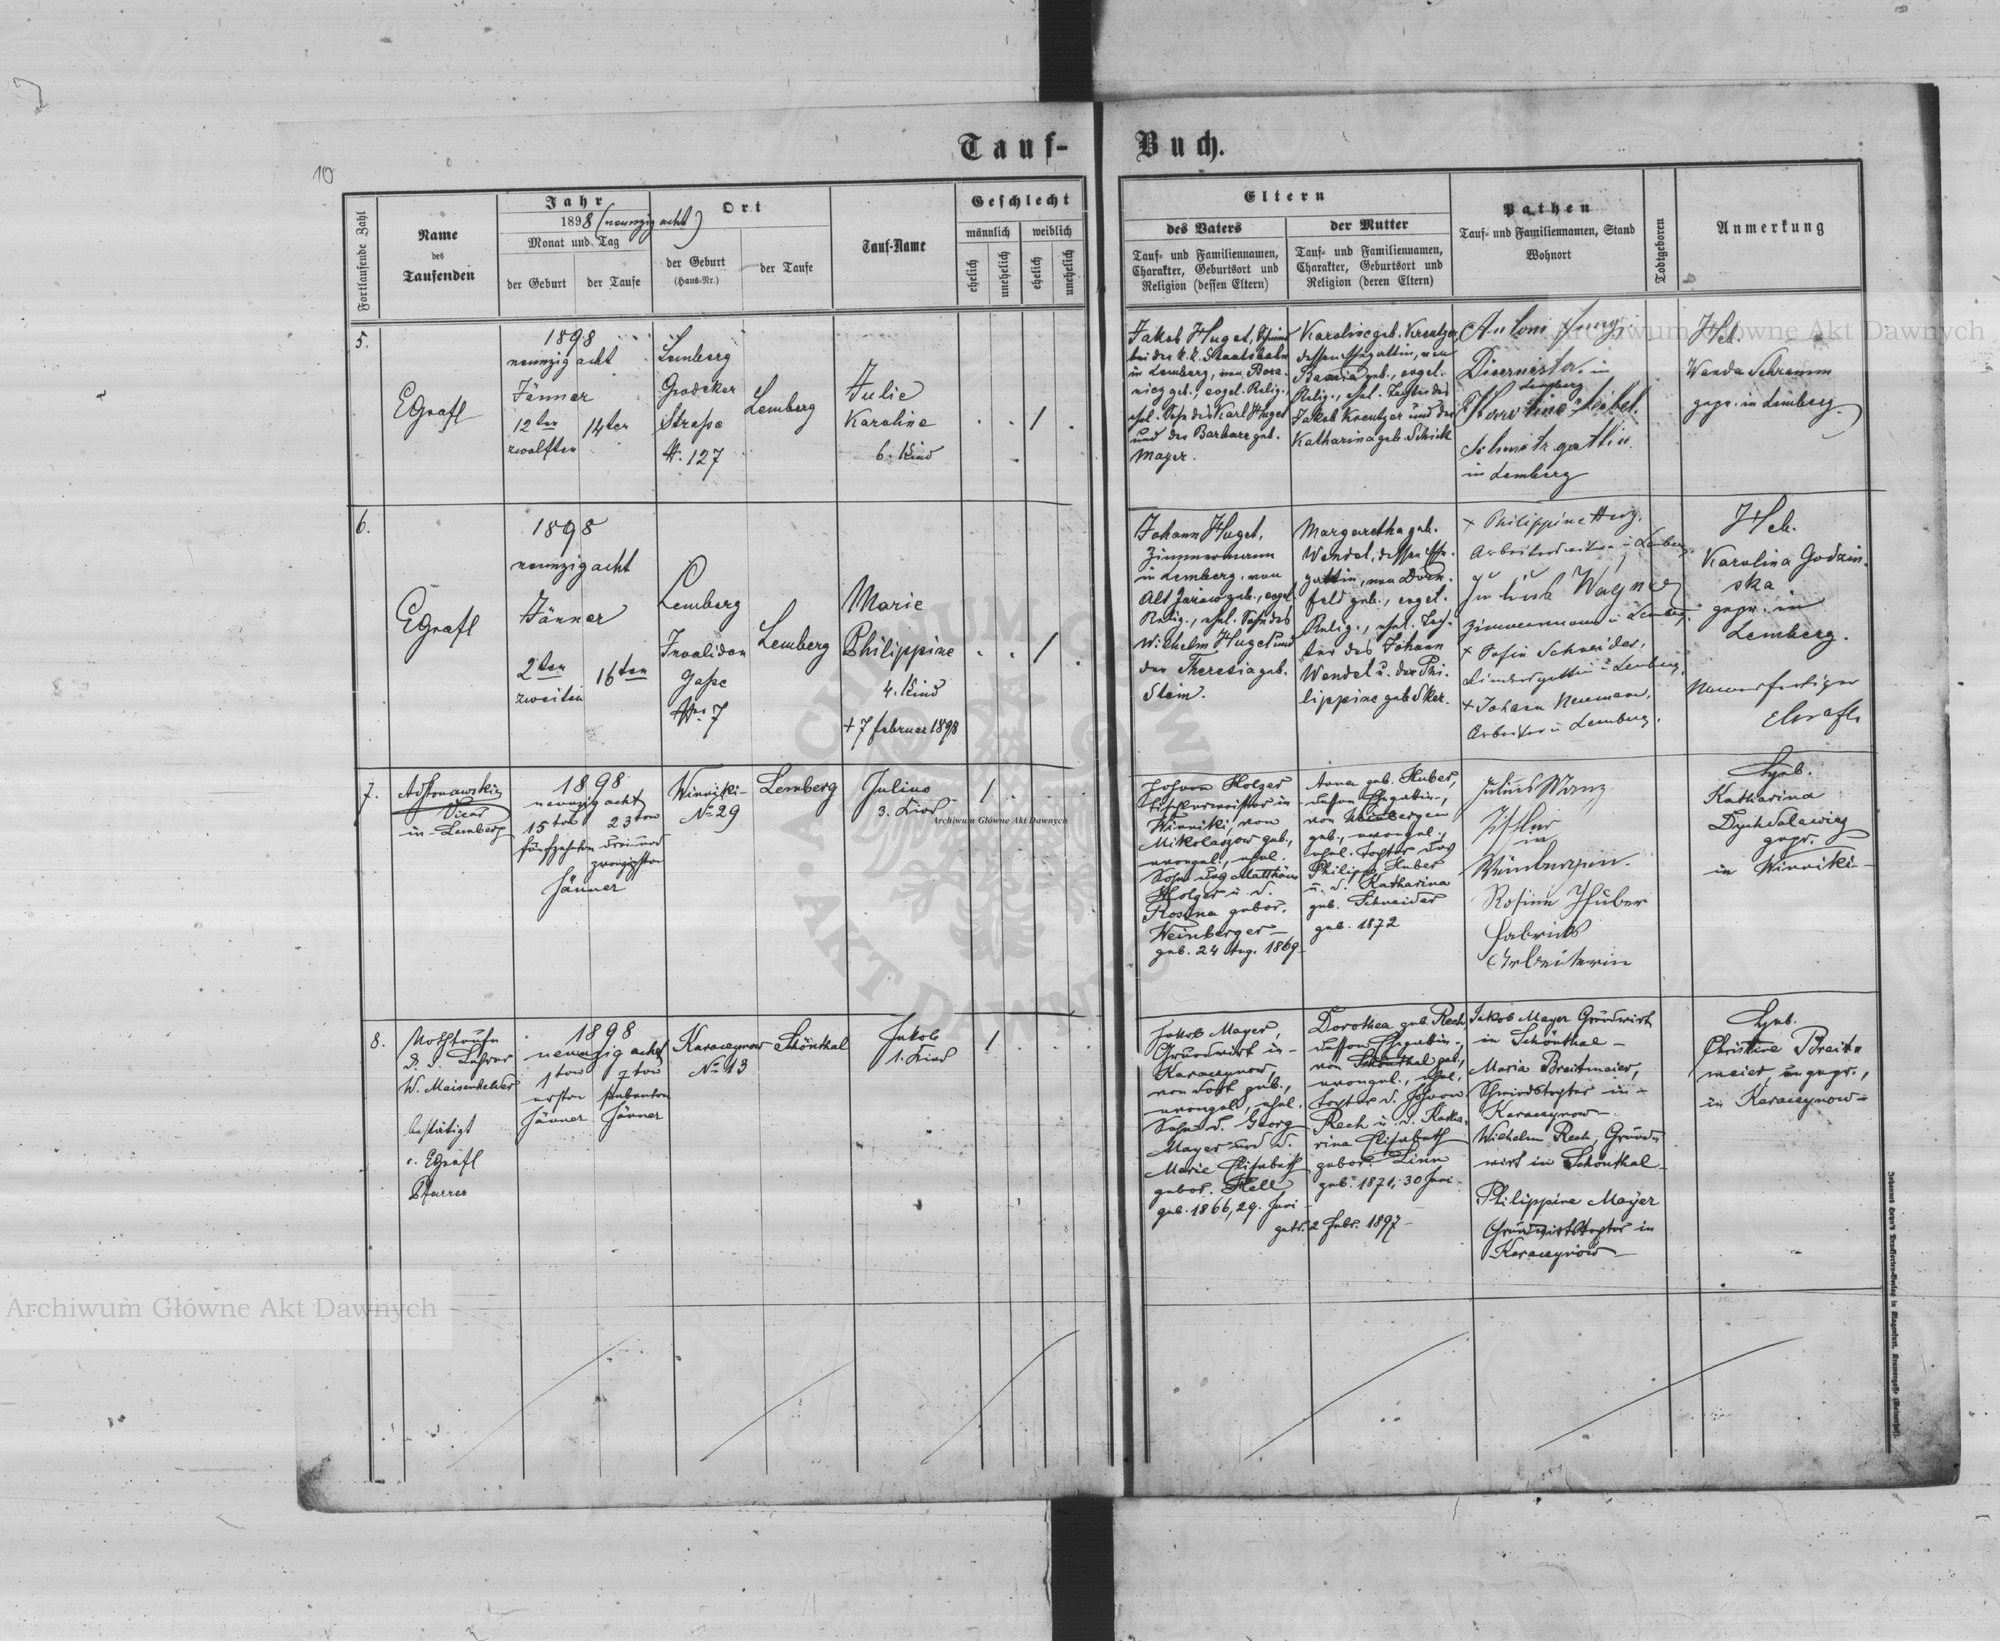 Tauf-
Buch.
10
Fortlaufende Zahl
Name
des
Taufenden
Jahr
1898 (neunzig acht)
Monat und Tag
der Geburt
der Taufe
Ort
der Geburt
(Haus-Nr.)
der Taufe
Tauf-Name
Geschlecht
männlich
weiblich
ehelich
unehelich
ehelich
unehelich
Eltern
des Vaters
Tauf- und Familiennamen,
Charakter, Geburtsort und
Religion (dessen Eltern)
der Mutter
Tauf- und Familiennamen,
Charakter, Geburtsort und
Religion (deren Eltern)
Pathen
Tauf- und Familiennamen, Stand
Wohnort
Todtgeboren
Anmerkung
5.
EGrafl
1898
neunzig acht
Jänner
12ten
zwölften
14ten
Lemberg
Grodeker
Strasse
N. 127
Lemberg
Julie
Karoline
6. Kind
1
Jakob Huget,
bei der k. k. Staatsbahn
in Lemberg, von
geb., evgel. Relig.,
ehel. Sohn des Karl Huget
und der Barbara geb.
Mayer.
Karoline geb. Kreutzer,
dessen Ehegattin, von
geb., evgel.
Relig., ehel. Tochter des
Jakob Kreutzer und der
Katharina geb. Schick
Antoni Jung,
in
Lemberg
Karoline
gattin
in Lemberg
Heb.
Wanda Schramm
gepr. in Lemberg.
6.
EGrafl
1898
neunzig acht
Jänner
2ten
zweiten
16ten
Lemberg
Invaliden
Gasse
Nr. 7
Lemberg
Marie
Philippine
4. Kind
+ 7 Februar 1898
1
Johann Huget,
Zimmermann
in Lemberg, von
Alt Jazow geb., evgel.
Relig., ehel. Sohn des
Wilhelm Huget und
der Theresia geb.
Stein.
Margaretha geb.
Wendel, dessen Ehe-
gattin, von Dorn-
feld geb., evgel.
Relig., ehel. Toch-
ter des Johann
Wendel u. der Phi-
lippine geb.
+ Philippine Herz,
in Lemberg.
Jakob Wagner
Zimmermann in Lemberg.
+ Sofie Schneider,
gattin in Lemberg,
+ Johann Neumann,
Arbeiter in Lemberg.
Heb.
Karolina Godzin-
ska
gepr. in
Lemberg.
EGrafl
7.
Vicar
in Lemberg
1898
neunzig acht
15ten
23ten
fünfzehnten
drei und
zwanzigsten
Jänner
Winniki-
No 29
Lemberg
Julius
3. Kind
1
Johann Holger
Tischlermeister in
Winniki, von
Mikolaszow geb.,
evangel., ehel.
Sohn des Matthäus
Holger u. d.
Rosina gebor.
Weinberger-
geb. 24 Aug. 1869-
Anna geb. Huber,
dessen Ehegattin,
von Weinbergen
geb., evangel.,
ehel. Tochter des
Philipp Huber
u. d. Katharina
geb. Schneider
geb. 1872
Julius Manz
Tischler
in
Weinbergen.
Rosina Huber
Fabriks
Arbeiterin
Heb.
Katharina
Dychdalewicz
gepr.
in Winniki-
8.
Nothtaufe
d. d. Lehrer
W. Maisenhelder
bestätigt
v. EGrafl
Pfarrer
1898
neunzig acht
1ten
7ten
ersten
siebenten
Jänner
Jänner
Karaczynow
No 13
Schönthal
Jakob
1. Kind
1
Jakob Mayer,
Grundwirt in-
Karaczynow,
von dort geb.,
evangel., ehel.
Sohn d. Georg
Mayer und d.
Marie Elisabeth
gebor. Hell
geb. 1866, 29. Juni
Dorothea geb. Rech,
dessen Ehegattin-,
von Schönthal geb.,
evangel., ehel.
Tochter d. Johann
Rech u. d. Katha-
rina Elisabeth
gebor. Linn
geb. 1871, 30 Juni-
getr. 2 Febr. 1897-
Jakob Mayer Grundwirt
in Schönthal-
Maria Breitmeier,
Schmiedstochter in-
Karaczynow-
Wilhelm Rech, Grund-
wirt in Schönthal-
Philippine Mayer
Grundwirtstochter in
Karaczynow-
Heb.
Christine Breit-
meier, ungepr.,
in Karaczynow-
Archiwum Główne Akt Dawnych
Archiwum Główne Akt Dawnych
Archiwum Główne Akt Dawnych